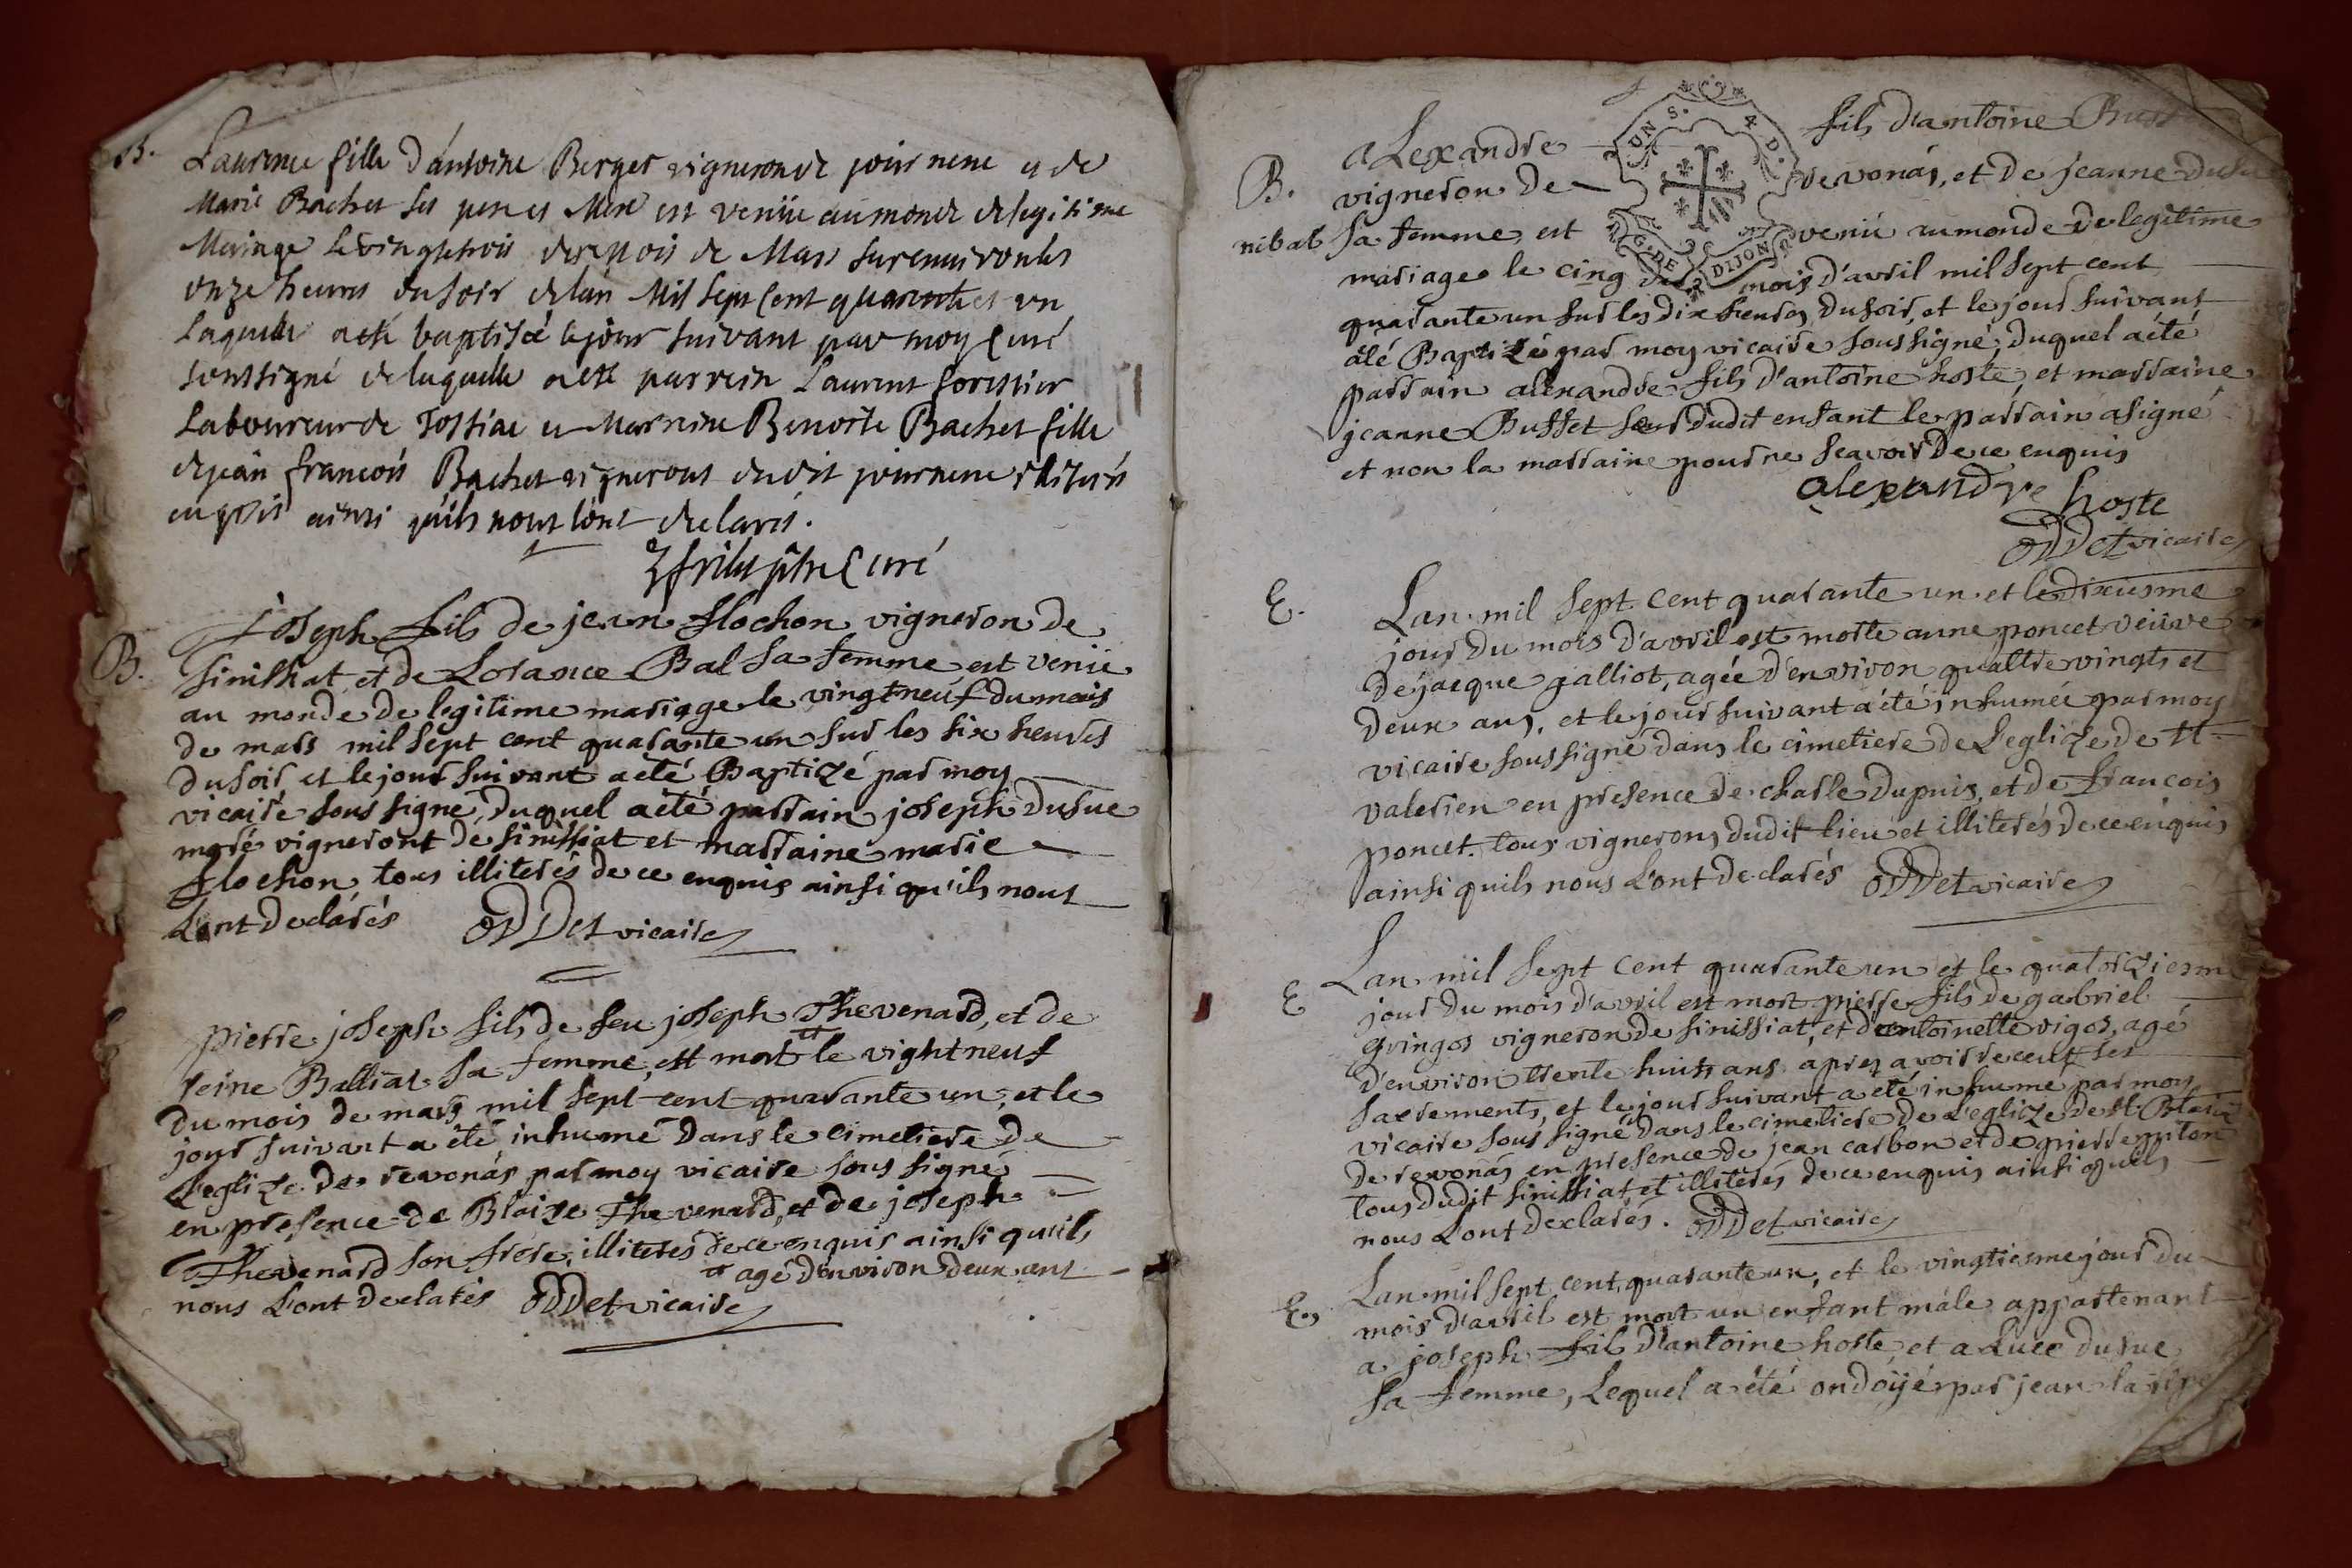 B. Laurence fille d'antoine Berger vigneron de journene et de
Marie Bachet ses pere et Mere est venüe au monde de legitime
Mariage le vingt trois du mois de Mars sur environ les
onze heures du soir de lan Mil sept Cent quarante et un
laquelle a eté baptisée le jour suivant par moy Curé
soussigné de laquelle a eté parrein Laurent forestier
Laboureur de Tossiac et Marreine Benoite Bachet fille
de jean francois Bachet vigneront dudit journene illiterés
enquis ainsi quils nous l'ont declarés.
ptre Curé
B. joseph fils de jean flochon vigneron de
sinissiat et de Lorance Bal sa femme est venü
au monde de legitime mariage le vingt neuf du mois
de mars mil sept cent quarante un sur les six heures
du soir et le jour suivant a eté Baptizé par moy
vicaire soussigné, duquel a eté parrain joseph dusue
maré vigneront de sinissiat et marraine marie
flochon tous illiterés de ce enquis ainsi qu'ils nous
L'ont declarés ODDet vicaire
pierre joseph fils de feu joseph Thevenard, et de
reine Balliat sa femme, est mort le vight neuf
du mois de mars mil sept cent quarante un, et le
jour suivant a été inhumé dans le cimetiere de
L'eglize de revonás par moy vicaire sous signé
en presence de Blaize Thevenard, et de joseph
Thevenard son frere, illiteres de ce enquis ainsi qu'ils
agé d'environ deux ans
nous L'ont declarés ODDet vicaire
UN S. 4 D.
G. DE DIJON
aLexandre fils d'antoine
B. vigneron de revonás, et de jeanne
sa femme est venü au monde de legitime
mariage le cinq du mois d'avril mil sept cent
quarante un sur les dix heures du soir, et le jour suivant
a été Baptizé par moy vicaire soussigné, duquel a été
parrain alexandre fils d'antoine hoste, et marraine
jeanne Buffet seur dudit enfant le parrain a signé
et non la marraine pour ne scavoir de ce enquis
alexandre hoste
ODDet vicaire
E. Lan mil sept cent quarante un et le dixiesme
jour du mois d'avril est morte anne poncet veüve
de jacque galliot, agée d'environ quattre vingts et
deux ans, et le jour suivant a été inhumée par moy
vicaire soussigné dans le cimetiere de L'eglize de st
valerien en presence de charle dupuis, et de francois
poncet tous vignerons dudit lieu et illiterés de ce enquis
ainsi quils nous L'ont declarés ODDet vicaire
E Lan mil sept cent quarante un et le quatorziesme
jour du mois d'avril est mort pierre fils de gabriel
gringos vigneron de sinissiat, et d'antoinette vigos, agé
d'environ trente huit ans aprez avoir receut ses
sacrements, et le jour suivant a eté inhumé par moy
vicaire sous signé dans le cimetiere de L'eglize de st Blaize
de revonás en presence de jean carbon et de pierre piton
tous dudit sinissiat et illiterés de ce enquis ainsi quils
nous L'ont declarés. ODDet vicaire
E. Lan mil sept cent quarante un, et le vingtiesme jour du
mois d'avril est mort un enfant mále appartenant
a joseph fils d'antoine hoste, et a Luce dusue
sa femme, Lequel a été ondoÿé par jean